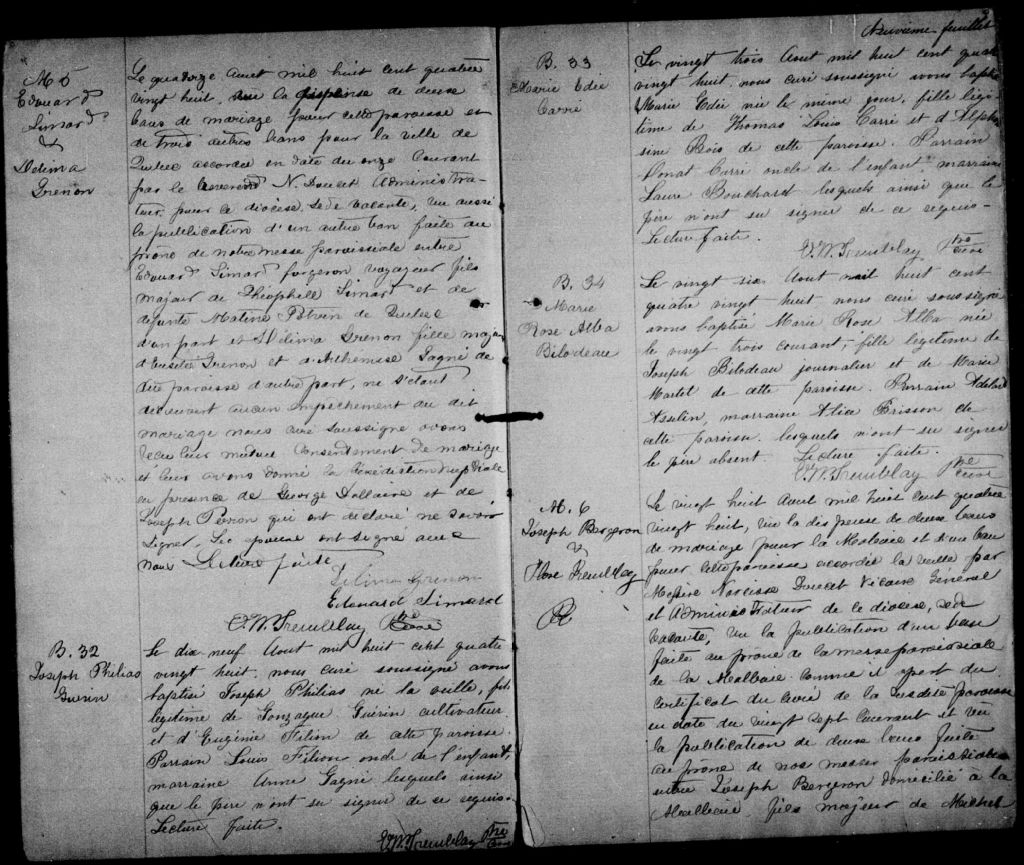 M 5
Edouard
Simard
&
Delima
Grenon
Le quatorze Aout mil huit cent quatre
vingt huit, vu la dispense de deux
bans de mariage pour cette paroisse et
de trois autres bans pour la ville de
Quebec accordée en date du onze courant
par le Reverend N. Doucet Administra-
teur pour ce diocèse, Sede Vacante, vu aussi
la publication d'un autre ban faite au
prône de notre messe paroissiale entre
Edouard Simard forgeron voyageur fils
majeur de Théophile Simard et de
defunte Potvin de Quebec
d'un part et Délima Grenon fille majeure
Grenon et d'Arthemise Gagné de
cette paroisse d'autre part, ne s'étant
découvert aucun empêchement au dit
mariage nous curé soussigné avons
recu leur mutuel consentement de mariage
et leur avons donné la bénédiction nuptiale
en presence de George Dallaire et de
Joseph Perron qui ont declaré ne savoir
signer. Les époux ont signé avec
nous Lecture faite
Delima Grenon
Edouard Simard
Tremblay Ptre Curé
B. 32
Joseph Philias
Guérin
Le dix neuf Aout mil huit cent quatre
vingt huit nous curé soussigné avons
baptisé Joseph Philias né la veille, fils
légitime de Gonzague Guérin cultivateur
et d'Eugénie Filion de cette paroisse.
Parrain Louis Filion oncle de l'enfant,
marraine Anne Gagné lesquels ainsi
que le père n'ont su signer de ce requis.
Lecture faite.
Tremblay Ptre Curé
Neuvième feuillet
B. 33
Marie Edée
Carré
Le vingt trois Aout mil huit cent quatre
vingt huit, nous curé soussigné avons baptisé
Marie Edée née le même jour, fille légi-
time de Thomas Louis Carré et d'Alphon
sine Bois de cette paroisse. Parrain
Donat Carré oncle de l'enfant, marraine
Laure Bouchard lesquels ainsi que le
père n'ont su signer de ce requis.
Lecture faite.
Tremblay Ptre Curé
B. 34
Marie
Rose Alba
Bilodeau
Le vingt six Aout mil huit cent
quatre vingt huit nous curé soussigné
avons baptisé Marie Rose Alba née
le vingt trois courant, fille légitime de
Joseph Bilodeau journalier et de Marie
Martel de cette paroisse. Parrain Adélard
Asselin, marraine Alice Brisson de
cette paroisse lesquels n'ont su signer
le père absent. Lecture faite.
Tremblay Ptre Curé
M. 6
Joseph Bergeron
&
Flore Tremblay
Le vingt huit Aout mil huit cent quatre
vingt huit, vu la dispense de deux bans
de mariage pour la Malbaie et d'un ban
pour cette paroisse accordée la veille par
Messire Narcisse Doucet Vicaire Général
et Administrateur de ce diocèse, sede
vacante, vu la publication d'un ban
faite au prône de la messe paroissiale
de la Malbaie comme il apert du
certificat du curé de la susdite paroisse
en date du vingt sept courant et vu
la publication de deux bans faite
au prône de nos messes paroissiales
entre Joseph Bergeron domicilié à la
Malbaie fils majeur de Michel